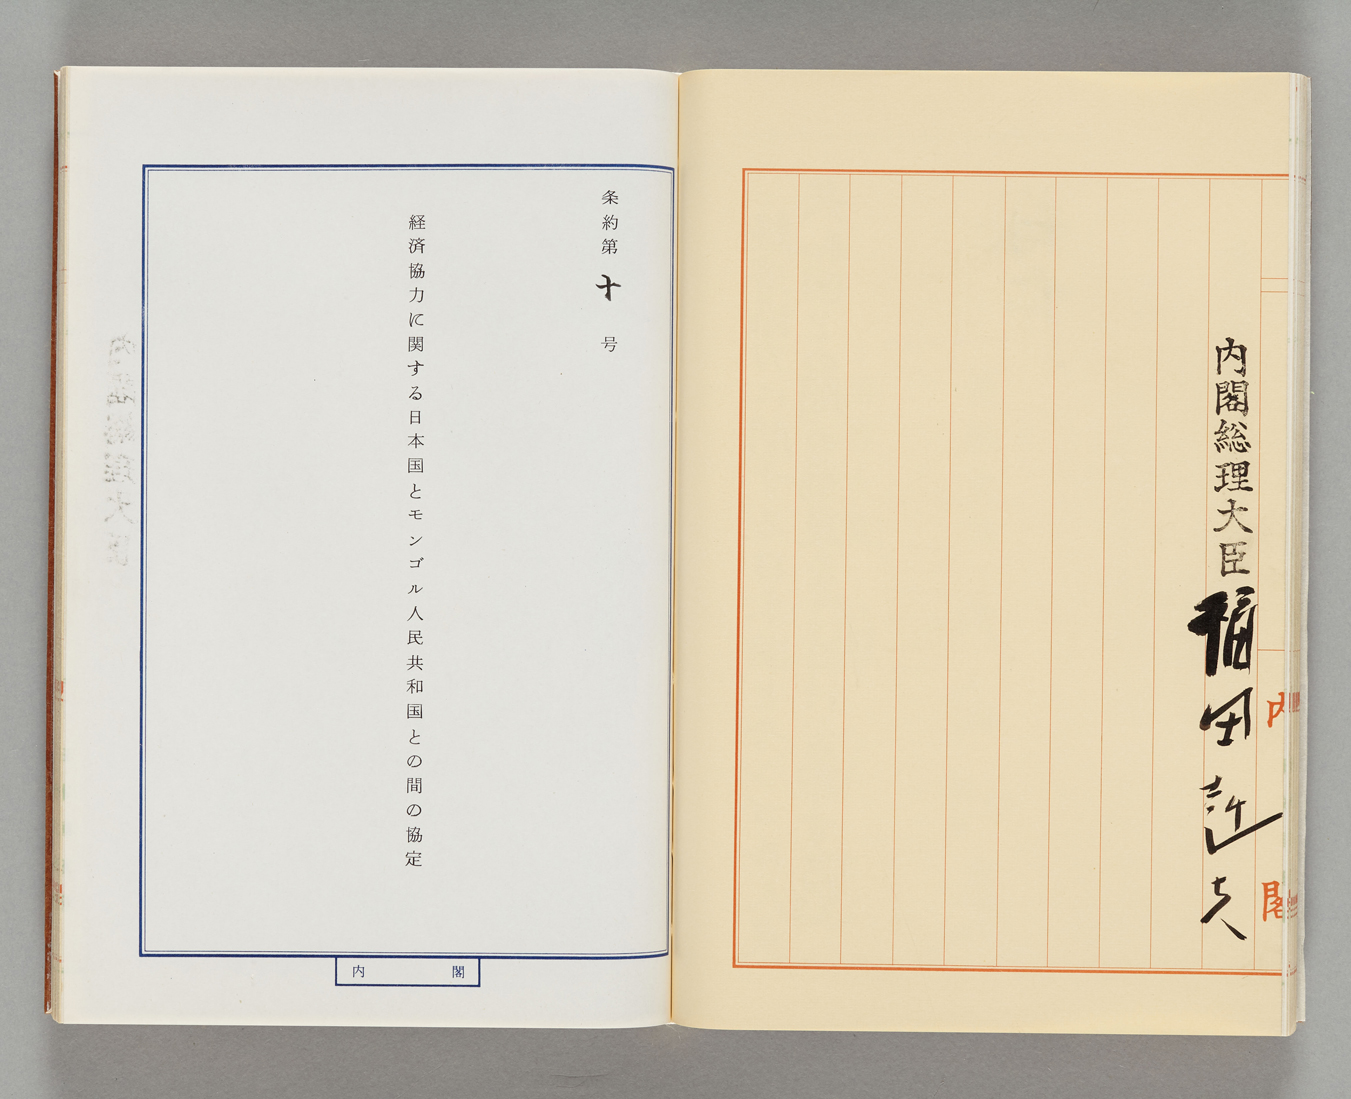 内閣総理大臣 福田赳夫
内閣
条約第十号
経済協力に関する日本国とモンゴル人民共和国との間の協定
内閣